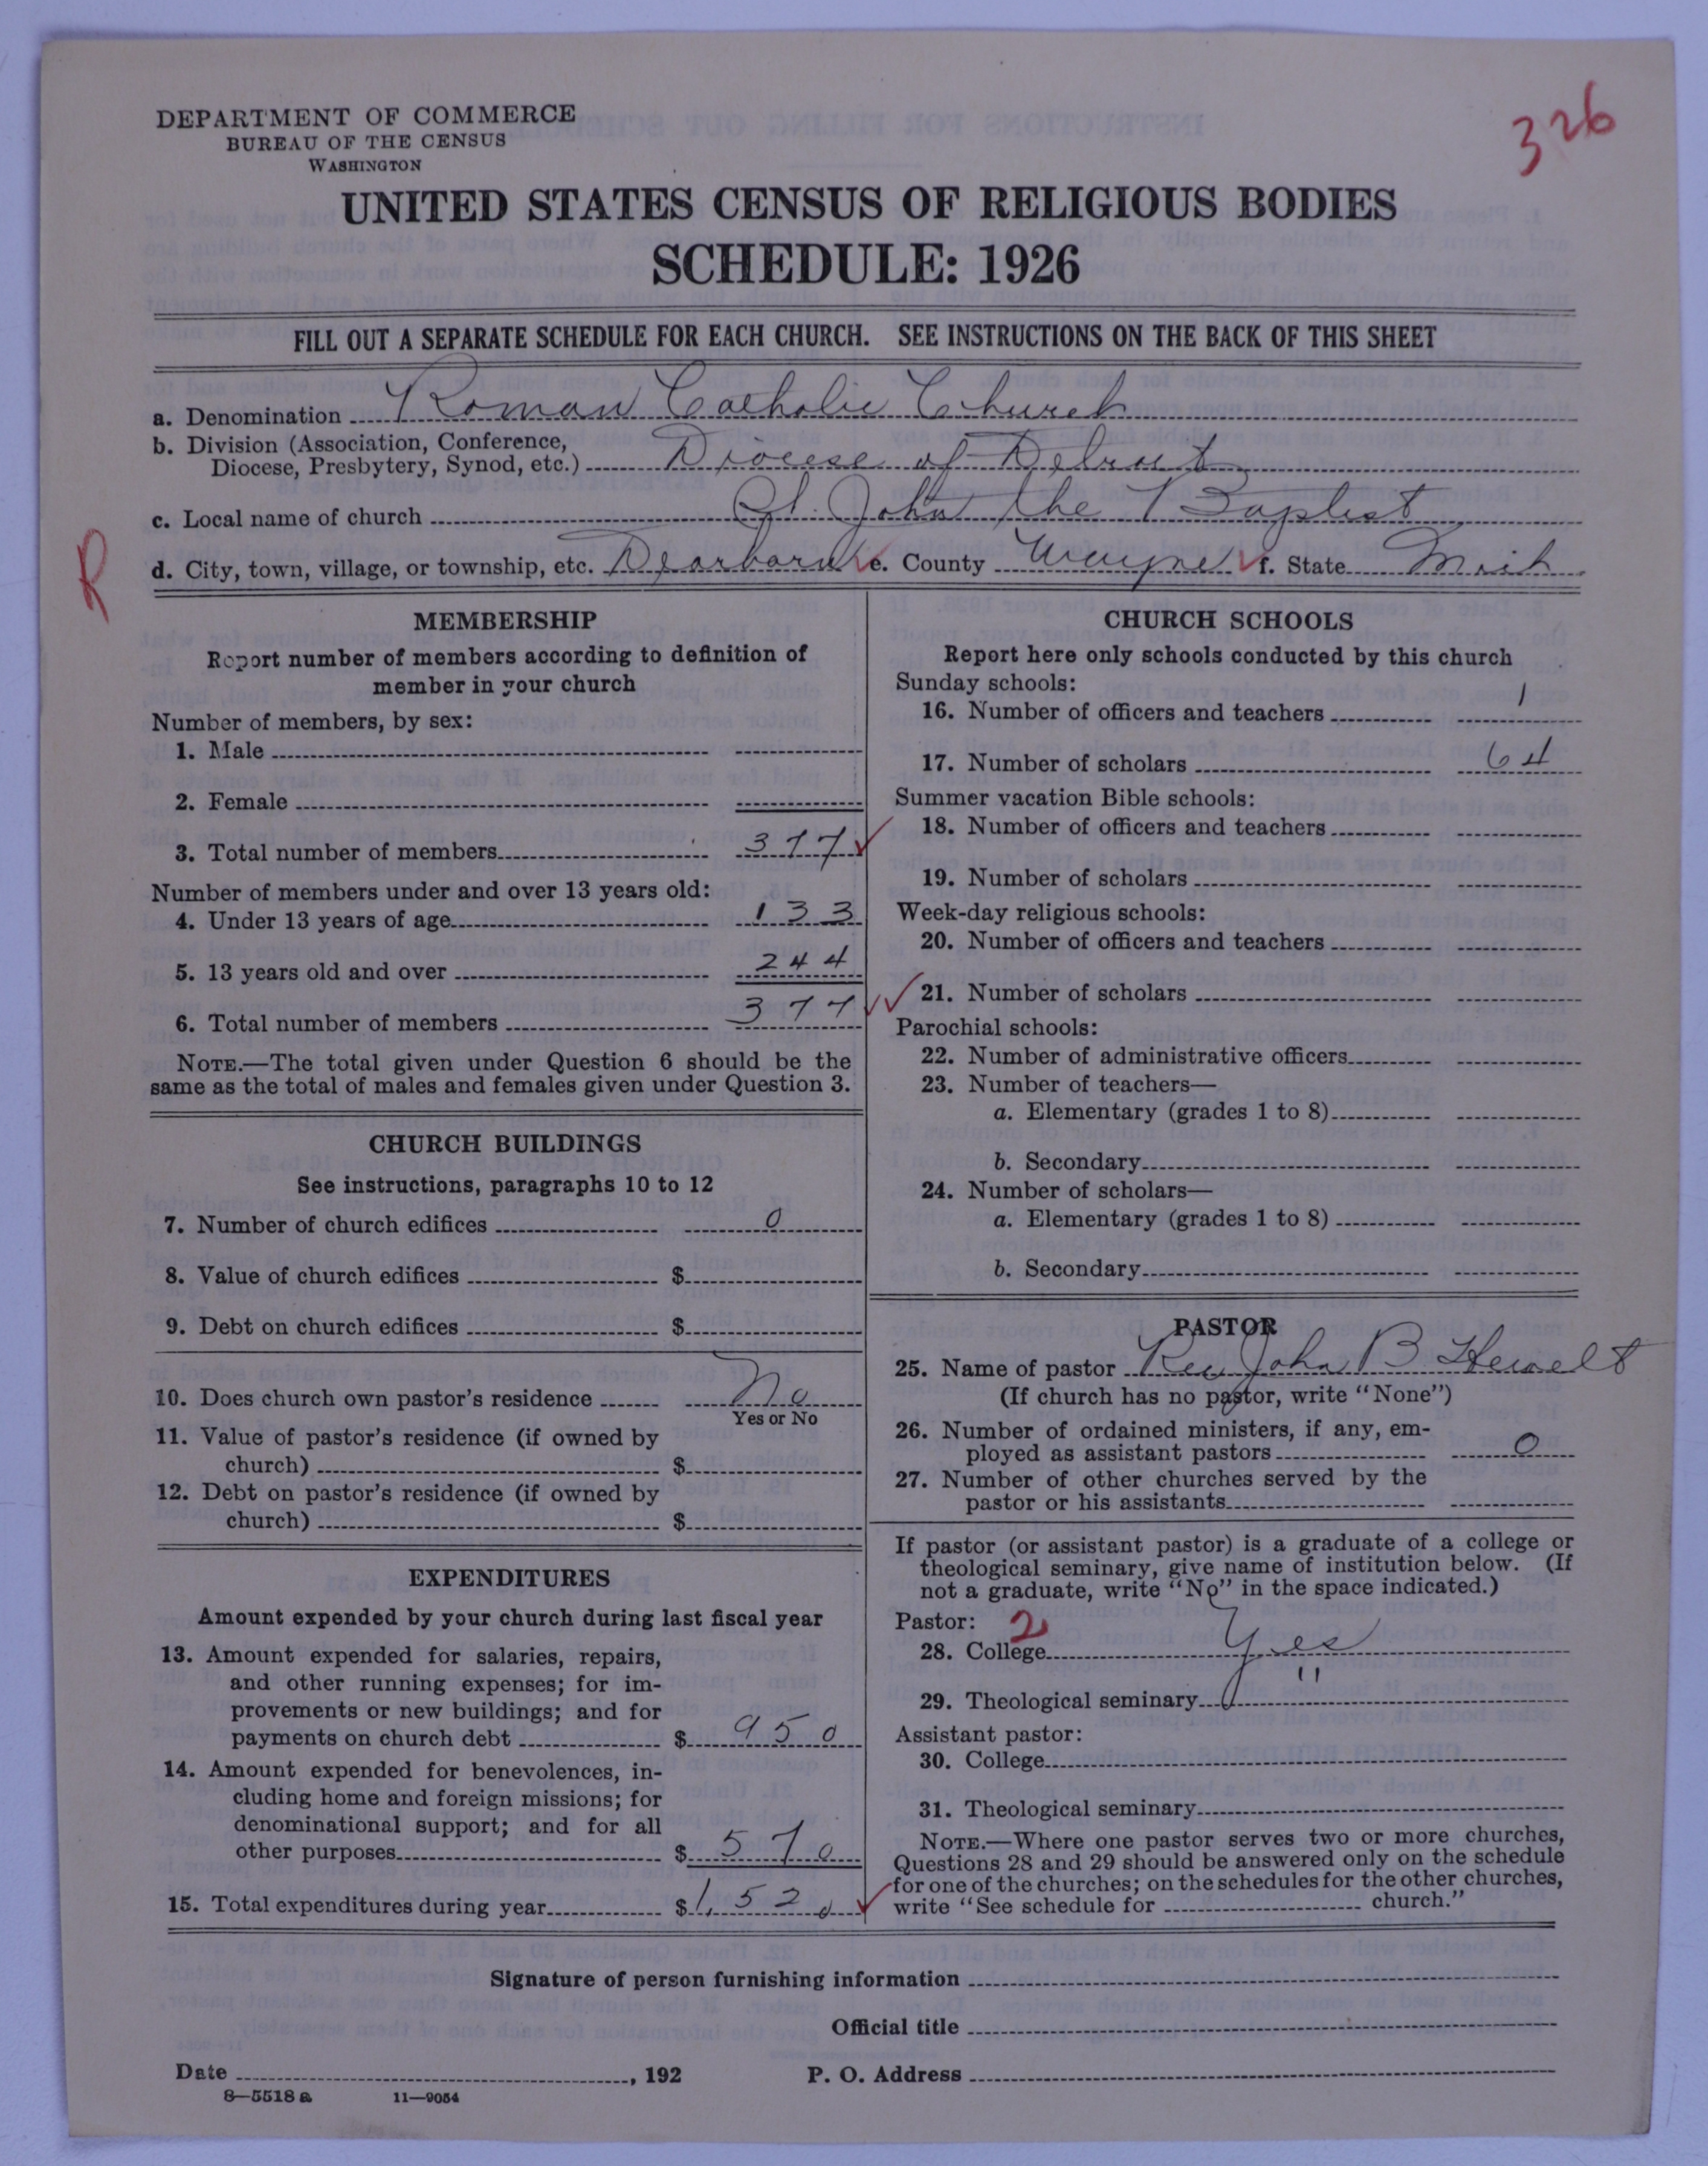 326
DEPARTMENT OF COMMERCE
BUREAU OF THE CENSUS
WASHINGTON
UNITED STATES CENSUS OF RELIGIOUS BODIES
SCHEDULE: 1926
FILL OUT A SEPARATE SCHEDULE FOR EACH CHURCH. SEE INSTRUCTIONS ON THE BACK OF THIS SHEET
a. Denomination Roman Catholic Church
b. Division (Association, Conference,
Diocese, Presbytery, Synod, etc.) Diocese of Detroit
c. Local name of church St. John the Baptist
R
d. City, town, village, or township, etc. Dearborn e. County Wayne f. State Mich
MEMBERSHIP
Report number of members according to definition of
member in your church
Number of members, by sex:
1. Male
2. Female
3. Total number of members 377
Number of members under and over 13 years old:
4. Under 13 years of age 133
5. 13 years old and over 244
6. Total number of members 377
NOTE.—The total given under Question 6 should be the
same as the total of males and females given under Question 3.
CHURCH BUILDINGS
See instructions, paragraphs 10 to 12
7. Number of church edifices 0
8. Value of church edifices $
9. Debt on church edifices $
10. Does church own pastor's residence No
Yes or No
11. Value of pastor's residence (if owned by
church) $
12. Debt on pastor's residence (if owned by
church) $
EXPENDITURES
Amount expended by your church during last fiscal year
13. Amount expended for salaries, repairs,
and other running expenses; for im-
provements or new buildings; and for
payments on church debt $ 950
14. Amount expended for benevolences, in-
cluding home and foreign missions; for
denominational support; and for all
other purposes $ 570
15. Total expenditures during year $ 1,520
CHURCH SCHOOLS
Report here only schools conducted by this church
Sunday schools:
16. Number of officers and teachers 1
17. Number of scholars 64
Summer vacation Bible schools:
18. Number of officers and teachers
19. Number of scholars
Week-day religious schools:
20. Number of officers and teachers
21. Number of scholars
Parochial schools:
22. Number of administrative officers
23. Number of teachers—
a. Elementary (grades 1 to 8)
b. Secondary
24. Number of scholars—
a. Elementary (grades 1 to 8)
b. Secondary
PASTOR
25. Name of pastor Rev John B
(If church has no pastor, write "None")
26. Number of ordained ministers, if any, em-
ployed as assistant pastors 0
27. Number of other churches served by the
pastor or his assistants
If pastor (or assistant pastor) is a graduate of a college or
theological seminary, give name of institution below. (If
not a graduate, write "No" in the space indicated.)
Pastor: 2
28. College Yes
29. Theological seminary "
Assistant pastor:
30. College
31. Theological seminary
NOTE.—Where one pastor serves two or more churches,
Questions 28 and 29 should be answered only on the schedule
for one of the churches; on the schedules for the other churches,
write "See schedule for church."
Signature of person furnishing information
Official title
Date , 192 P. O. Address
8—5518 a 11—9054